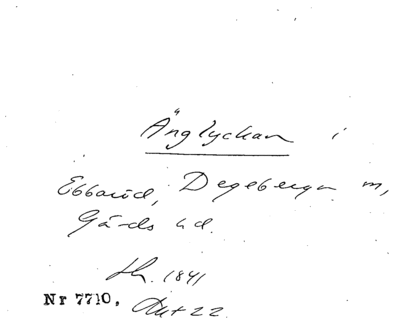 Änglyckan i
Ebbaröd, Degeberga sn,
Gärds hd.
1841
Nr 7710, Akt 22